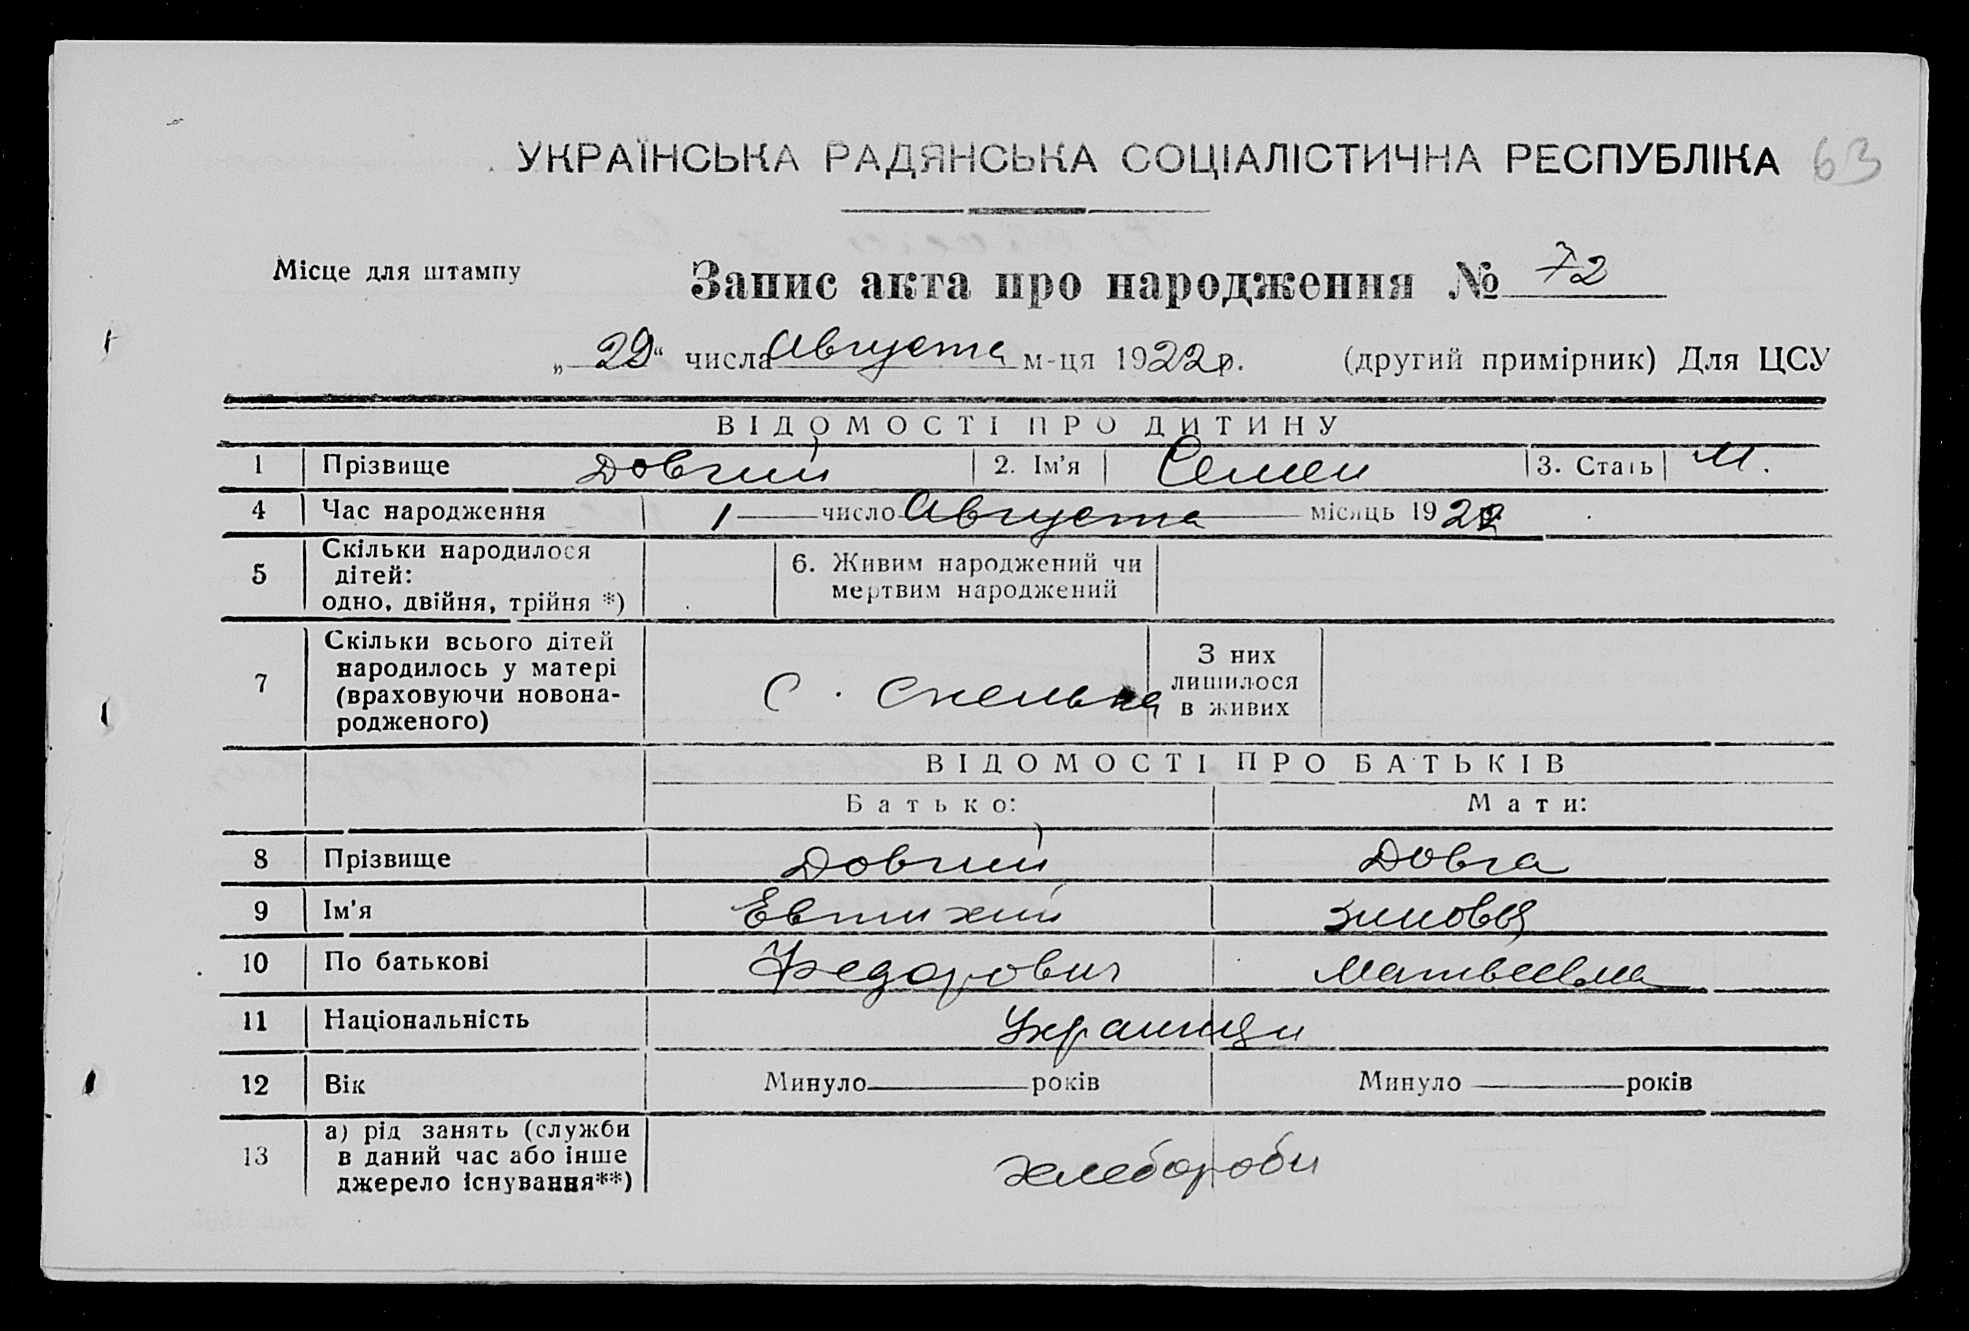 УКРАЇНСЬКА РАДЯНСЬКА СОЦІАЛІСТИЧНА РЕСПУБЛІКА 63
Місце для штампу
Запис акта про народження № 72
„29“ числа Августа м-ця 1922 р. (другий примірник) Для ЦСУ
ВІДОМОСТІ ПРО ДИТИНУ
1 Прізвище Довгий 2. Ім'я Семен 3. Стать М.
4 Час народження 1 число Августа місяць 1922
5 Скільки народилося дітей: одно, двійня, трійня *) 6. Живим народжений чи мертвим народжений
7 Скільки всього дітей народилось у матері (враховуючи новонародженого) С. Скелька З них лишилося в живих
ВІДОМОСТІ ПРО БАТЬКІВ
Батько: Мати:
8 Прізвище Довгий Довга
9 Ім'я Евтихий Зиновья
10 По батькові Федорович Матвеевна
11 Національність Украинци
12 Вік Минуло років Минуло років
13 а) рід занять (служби в даний час або інше джерело існування**) Хлебороби